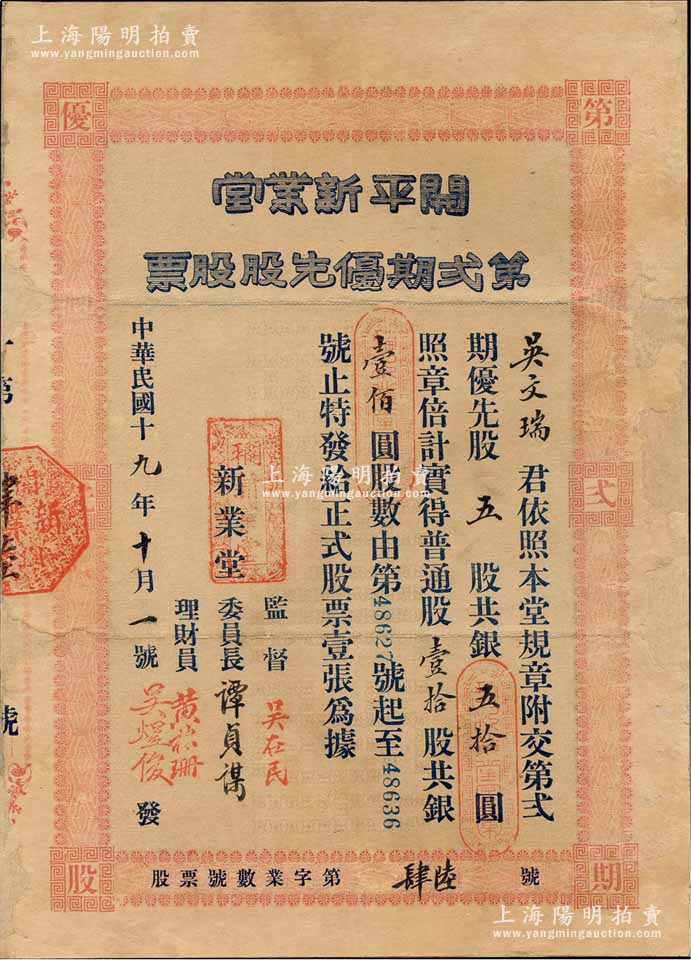 上海陽明拍賣
www.yangmingauction.com
優 第
弍
股 期
開平新業堂
第弍期優先股股票
吳文瑞 君依照本堂規章附交第弍
期優先股 五 股共銀 五拾 圓
照章倍計實得普通股 壹拾 股共銀
壹佰 圓股數由第48627號起至48636
號止特發給正式股票壹張為據
新業堂
監督 吳在民
委員長 譚貞謀
理財員 黃 珊 吳煜俊
中華民國十九年十月一號 發
股票號數業字第 肆陸 號
第
號
新
上海陽明拍賣
www.yangmingauction.com
上海陽明拍賣
www.yangmingauction.com